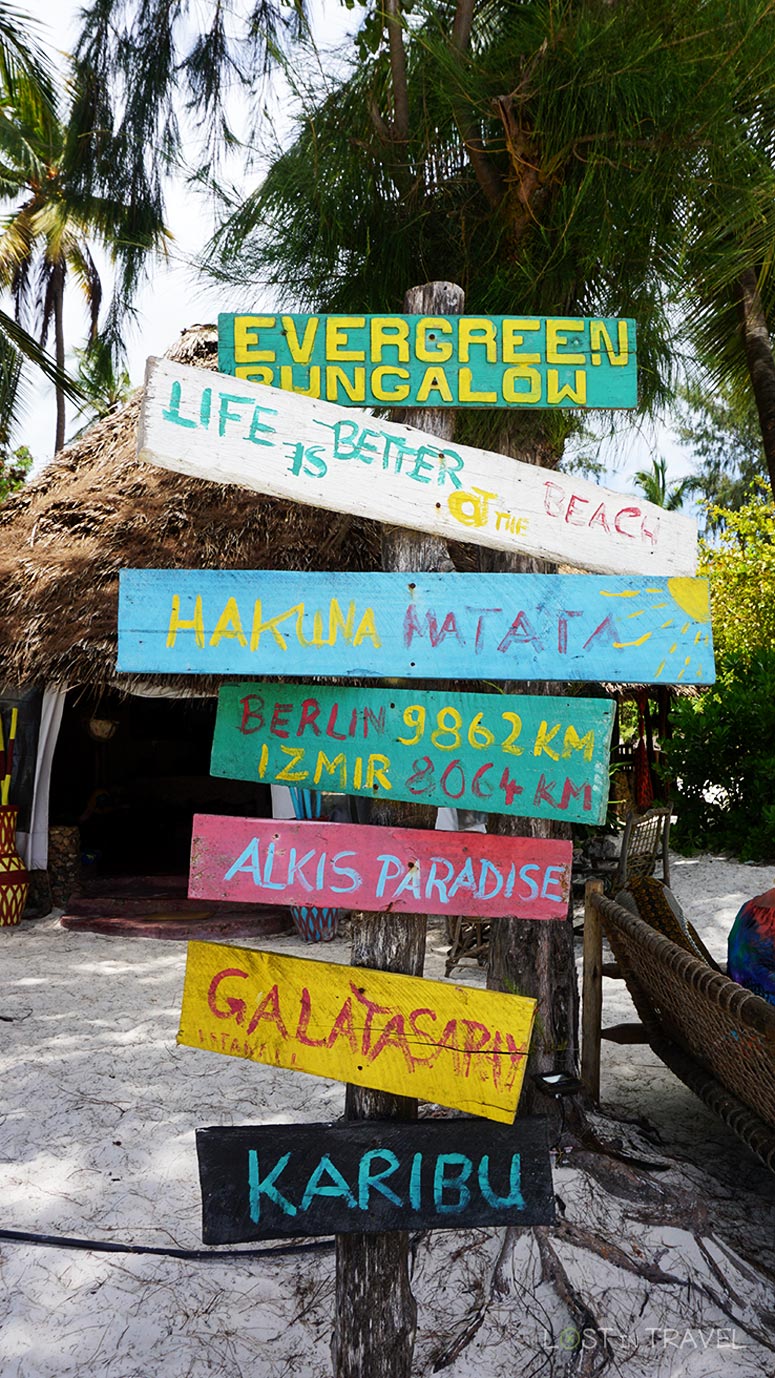 EVERGREEN
BUNGALOW
LIFE IS BETTER @ THE BEACH
HAKUNA MATATA
BERLIN 9862 KM
IZMIR 8064 KM
ALKIS PARADISE
GALATASARAY
KARIBU
LOST IN TRAVEL